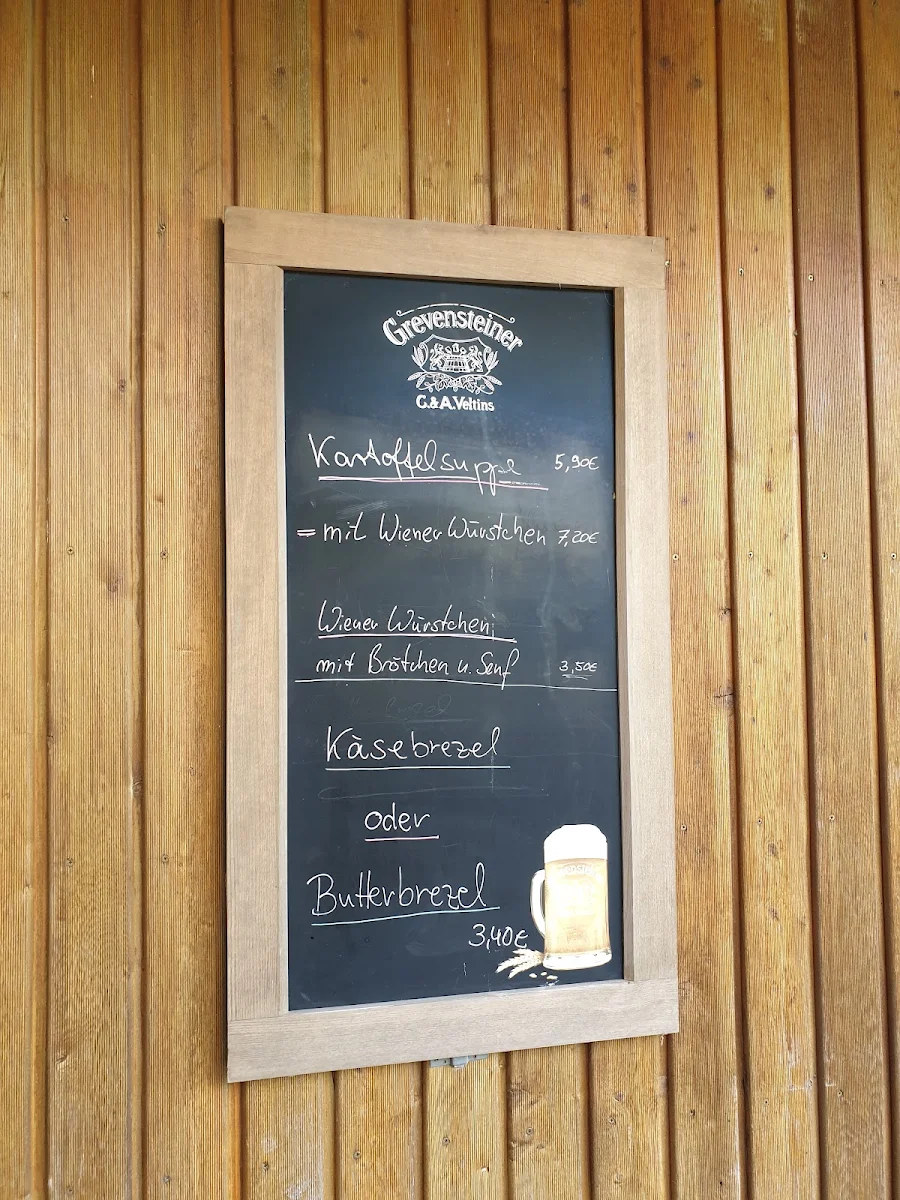 Grevensteiner
C.&A.Veltins
Kartoffelsuppe 5,90€
= mit Wiener Würstchen 7,20€
Wiener Würstchen
mit Brötchen u. Senf 3,50€
Käsebrezel
oder
Butterbrezel
3,40€